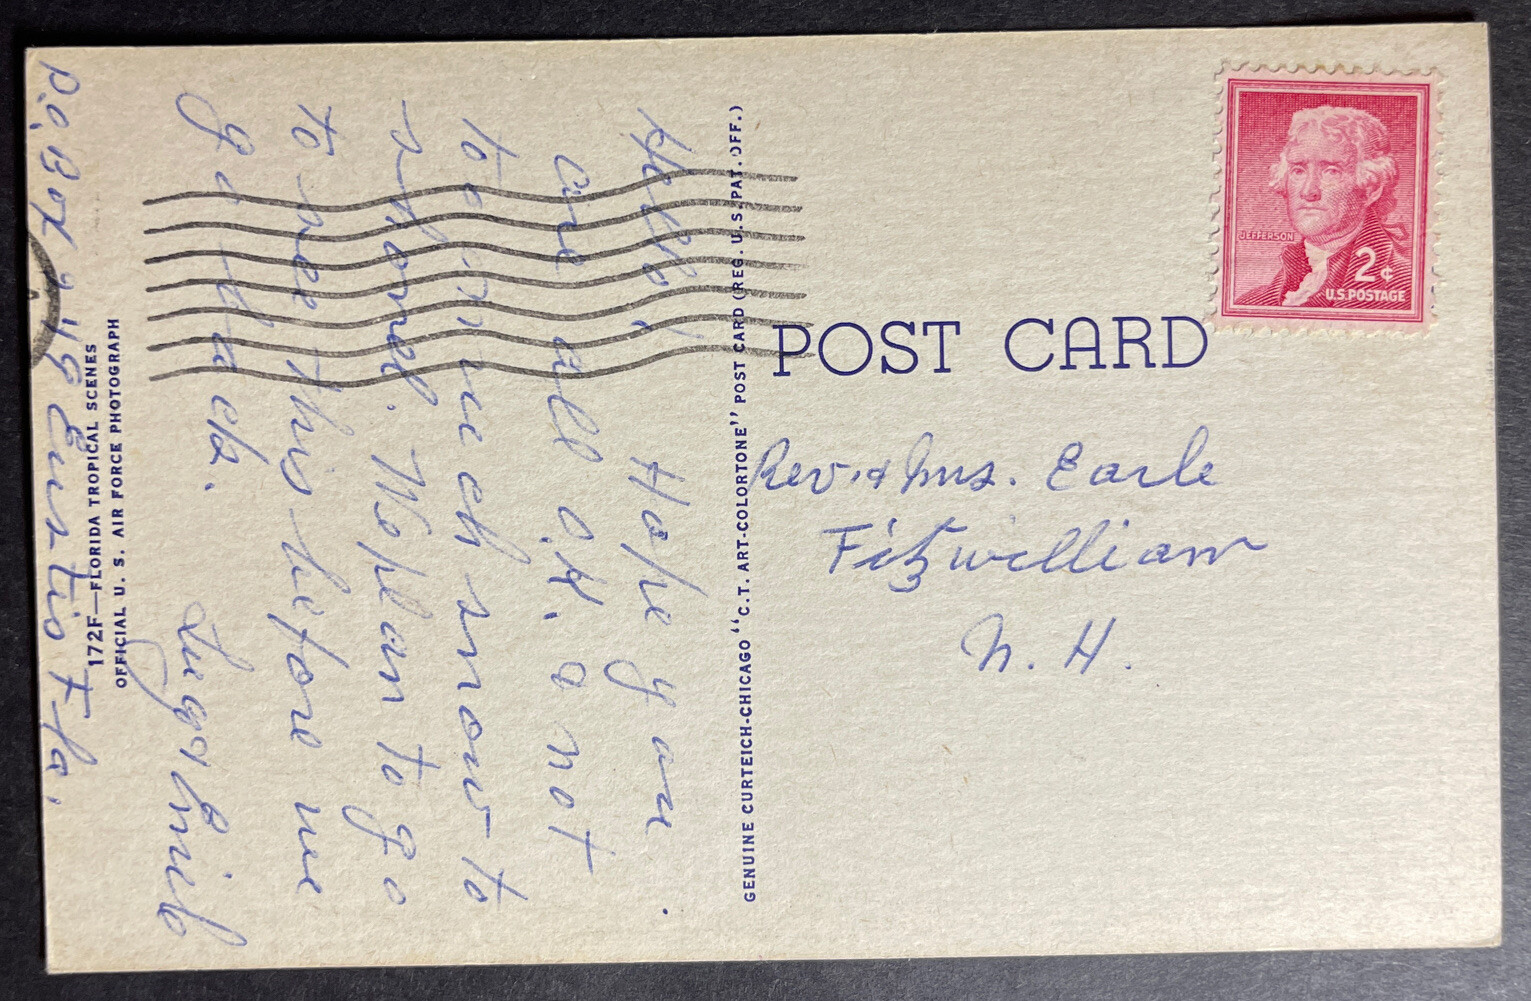 Hello! Hope you
are all O.K. & not
too much snow to
shovel. We plan to go
to see this before we
go back.
P.O. Box 248 Eustis Fla.
172F—FLORIDA TROPICAL SCENES
OFFICIAL U. S. AIR FORCE PHOTOGRAPH
GENUINE CURTEICH-CHICAGO "C.T. ART-COLORTONE" POST CARD (REG. U.S. PAT. OFF.)
POST CARD
JEFFERSON
2¢
U.S. POSTAGE
Rev. & Mrs. Earle
Fitzwilliam
N. H.